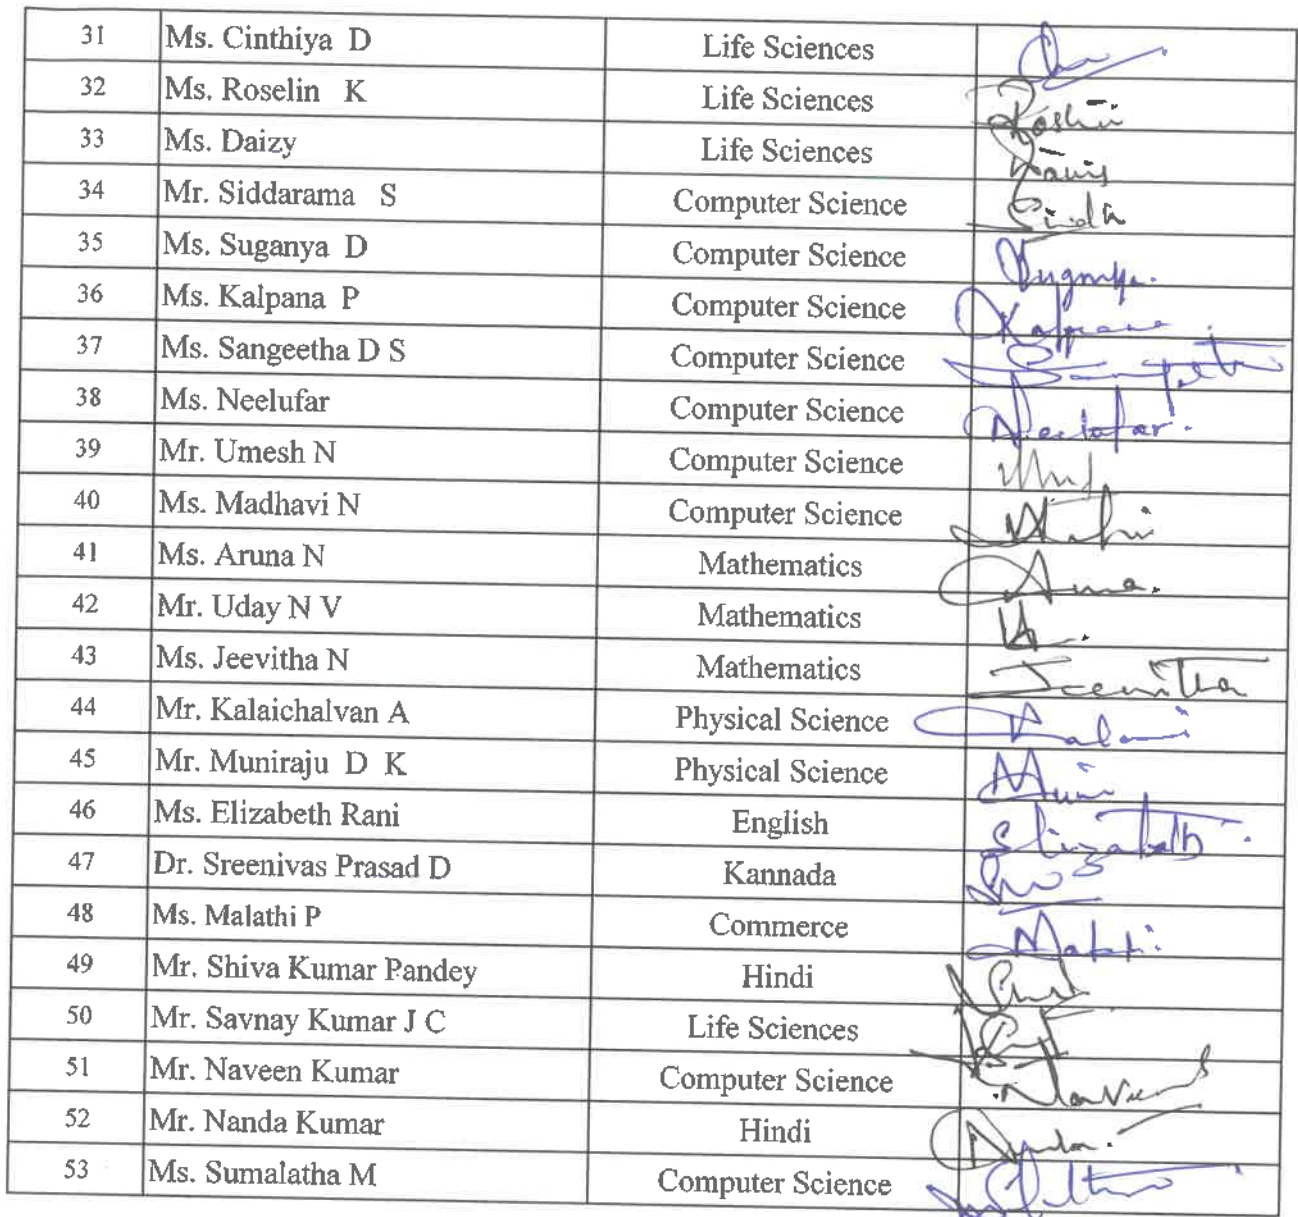 31 Ms. Cinthiya D Life Sciences
32 Ms. Roselin K Life Sciences
33 Ms. Daizy Life Sciences
34 Mr. Siddarama S Computer Science
35 Ms. Suganya D Computer Science
36 Ms. Kalpana P Computer Science Kalpana
37 Ms. Sangeetha D S Computer Science
38 Ms. Neelufar Computer Science Neelofar.
39 Mr. Umesh N Computer Science
40 Ms. Madhavi N Computer Science
41 Ms. Aruna N Mathematics
42 Mr. Uday N V Mathematics
43 Ms. Jeevitha N Mathematics Jeevitha
44 Mr. Kalaichalvan A Physical Science
45 Mr. Muniraju D K Physical Science
46 Ms. Elizabeth Rani English Elizabeth
47 Dr. Sreenivas Prasad D Kannada
48 Ms. Malathi P Commerce
49 Mr. Shiva Kumar Pandey Hindi
50 Mr. Savnay Kumar J C Life Sciences
51 Mr. Naveen Kumar Computer Science
52 Mr. Nanda Kumar Hindi
53 Ms. Sumalatha M Computer Science